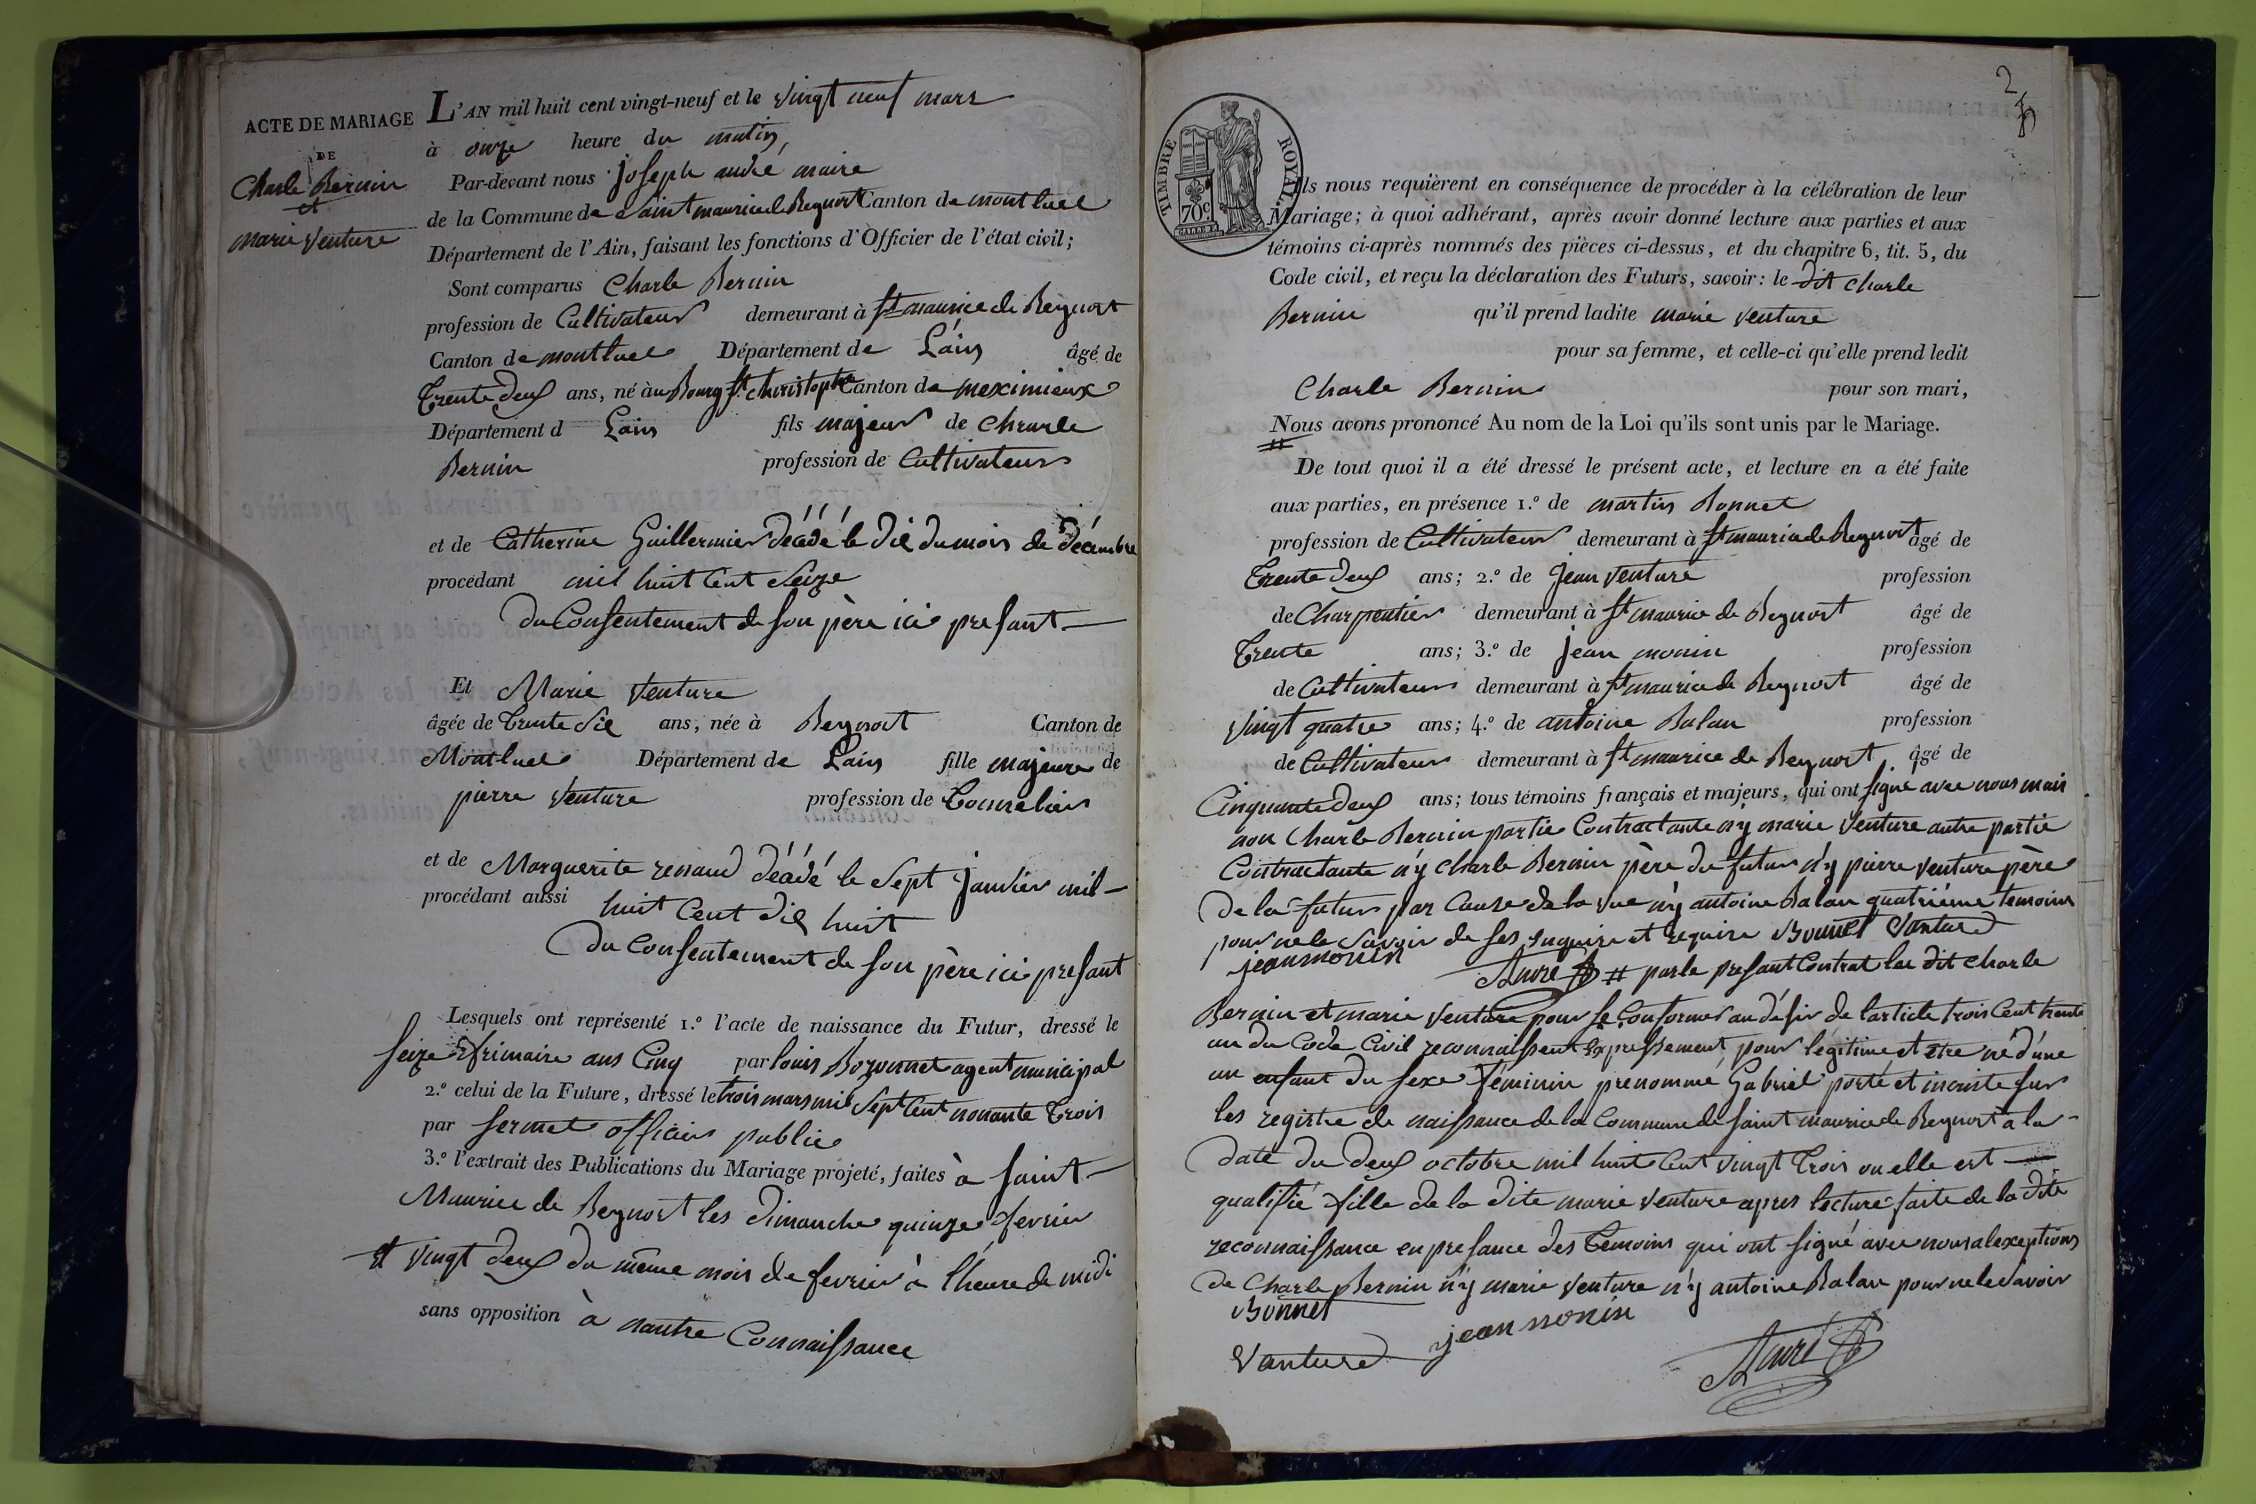 ACTE DE MARIAGE
DE
Charle Bernin
et
marie venture
L'AN mil huit cent vingt-neuf et le vingt neuf mars
à onze heure du matin,
Par-devant nous joseph andré maire
de la Commune de Saint maurice de Beynost Canton de montluel
Département de l'Ain, faisant les fonctions d'Officier de l'état civil;
Sont comparus Charle Bernin
profession de Cultivateur demeurant à St maurice de Beynost
Canton de montluel Département de Lain âgé de
Trente deux ans, né à au Bourg St christophe Canton de meximieux
Département d Lain fils majeur de Charle
Bernin profession de Cultivateur
et de Catherine Guillermier décédé le dix du mois de décembre
procédant mil huit Cent Seize
du Consentement de son père ici présant
Et Marie venture
âgée de Trente Six ans, née à Beynost Canton de
Montluel Département de Lain fille majeure de
pierre venture profession de Tonnelier
et de Marguerite renaud décédé le Sept janvier mil
procédant aussi huit Cent dix huit
du Consentement de son père ici présant
Lesquels ont représenté 1.º l'acte de naissance du Futur, dressé le
Seize frimaire ans Cinq par louis Bozonnet agent municipal
2.º celui de la Future, dressé le trois mars mil Sept Cent nonante Trois
par Sermet officier public
3.º l'extrait des Publications du Mariage projeté, faites à Saint
Maurice de Beynost les dimanche quinze fevrier
et vingt deux du même mois de fevrier à l'heure de midi
sans opposition à nautre Connaissance
2
TIMBRE ROYAL
70c
Ils nous requièrent en conséquence de procéder à la célébration de leur
Mariage; à quoi adhérant, après avoir donné lecture aux parties et aux
témoins ci-après nommés des pièces ci-dessus, et du chapitre 6, tit. 5, du
Code civil, et reçu la déclaration des Futurs, savoir: le dit charle
Bernin qu'il prend ladite marie venture
pour sa femme, et celle-ci qu'elle prend ledit
Charle Bernin pour son mari,
Nous avons prononcé Au nom de la Loi qu'ils sont unis par le Mariage.
#
De tout quoi il a été dressé le présent acte, et lecture en a été faite
aux parties, en présence 1.º de martin Bonnet
profession de Cultivateur demeurant à St maurice de Beynost âgé de
Trente deux ans; 2.º de Jean venture profession
de Charpentier demeurant à St maurice de Beynost âgé de
Trente ans; 3.º de jean monin profession
de Cultivateur demeurant à St maurice de Beynost âgé de
vingt quatre ans; 4.º de antoine Balan profession
de Cultivateur demeurant à St maurice de Beynost âgé de
Cinquante deux ans; tous témoins français et majeurs, qui ont signé avec nous mais
non Charle Bernin partie Contractante n'y marie venture autre partie
Contractante n'y charle Bernin père du futur n'y pierre venture père
de la futur par Cause de la vue n'y antoine Balan quatrième temoins
pour ne le savoir de ses enquire et require Bonnet Vanture
jean monin André # par le présant Contrat les dit charle
Bernin et marie venture pour se Conformer au désir de l'article trois Cent trente
un du Code Civil reconnaissent expressement pour légitime et être né d'une
un enfant du sexe féminin prenommé Gabriel porté et inscrite sur
les registre de naissance de la Commune de Saint maurice de Beynost à la
date du deux octobre mil huit Cent vingt Trois ou elle est
qualifié fille de la dite marie venture apres lecture faite de la dite
reconnaissance en présance des Temoins qui ont signé avec nous a lexeptions
de Charle Bernin n'y marie venture n'y antoine Balan pour ne le savoir
Bonnet
jean monin
Vanture
André